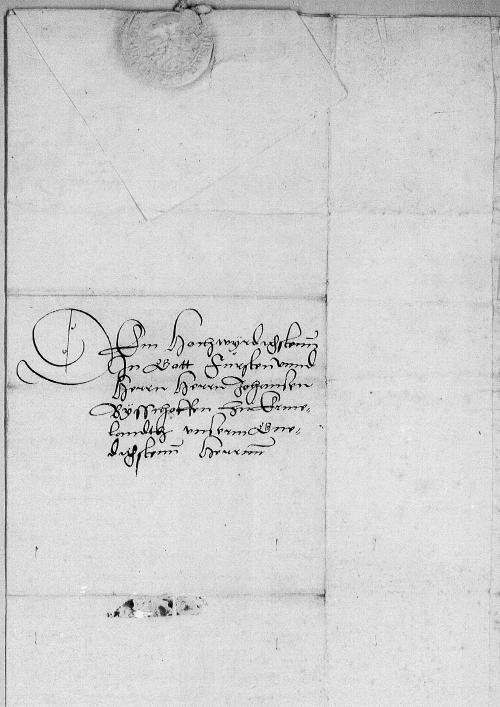 Dem Hochwyrdigstenn
In Gott Fursten unnd
Herrn Herrn Johansen
Bysschoffen Zu Erme-
landth unserm Gne-
digstenn Herrnn